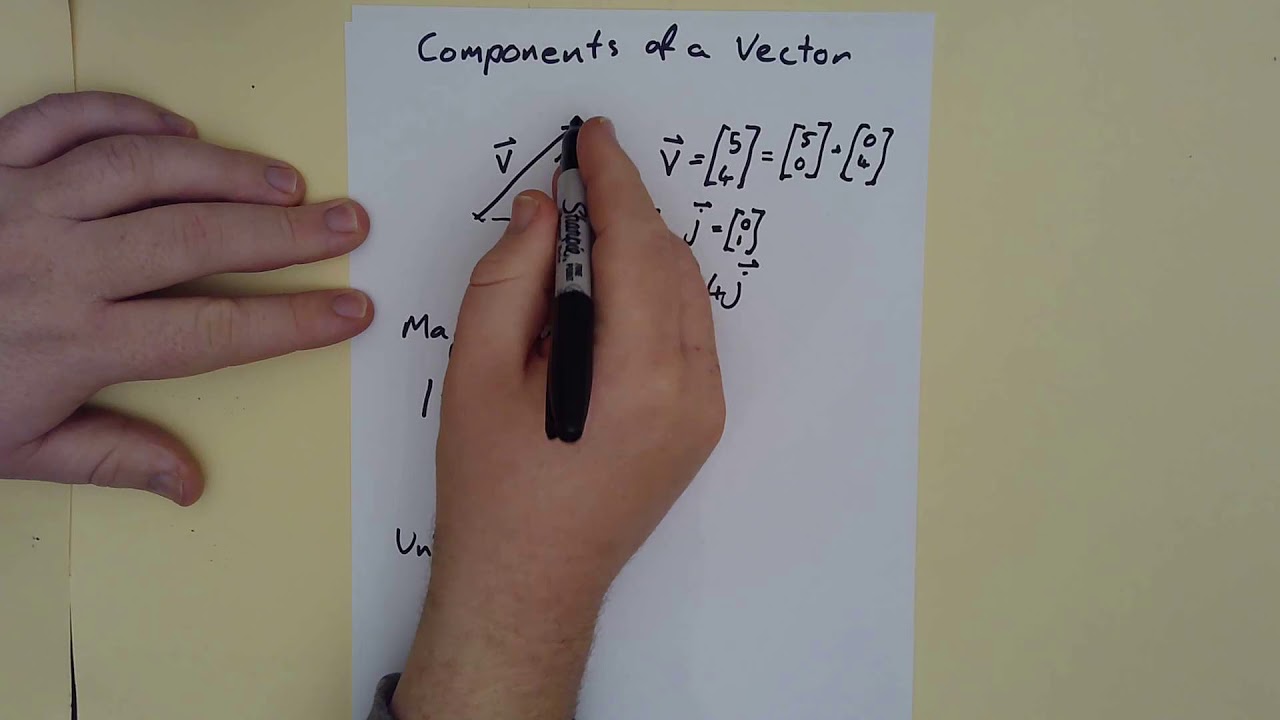 Components of a Vector
v⃗
v⃗ = [5 4] = [5 0] + [0 4]
j⃗ = [0 1]
4j⃗
Ma
|
Un
Sharpie